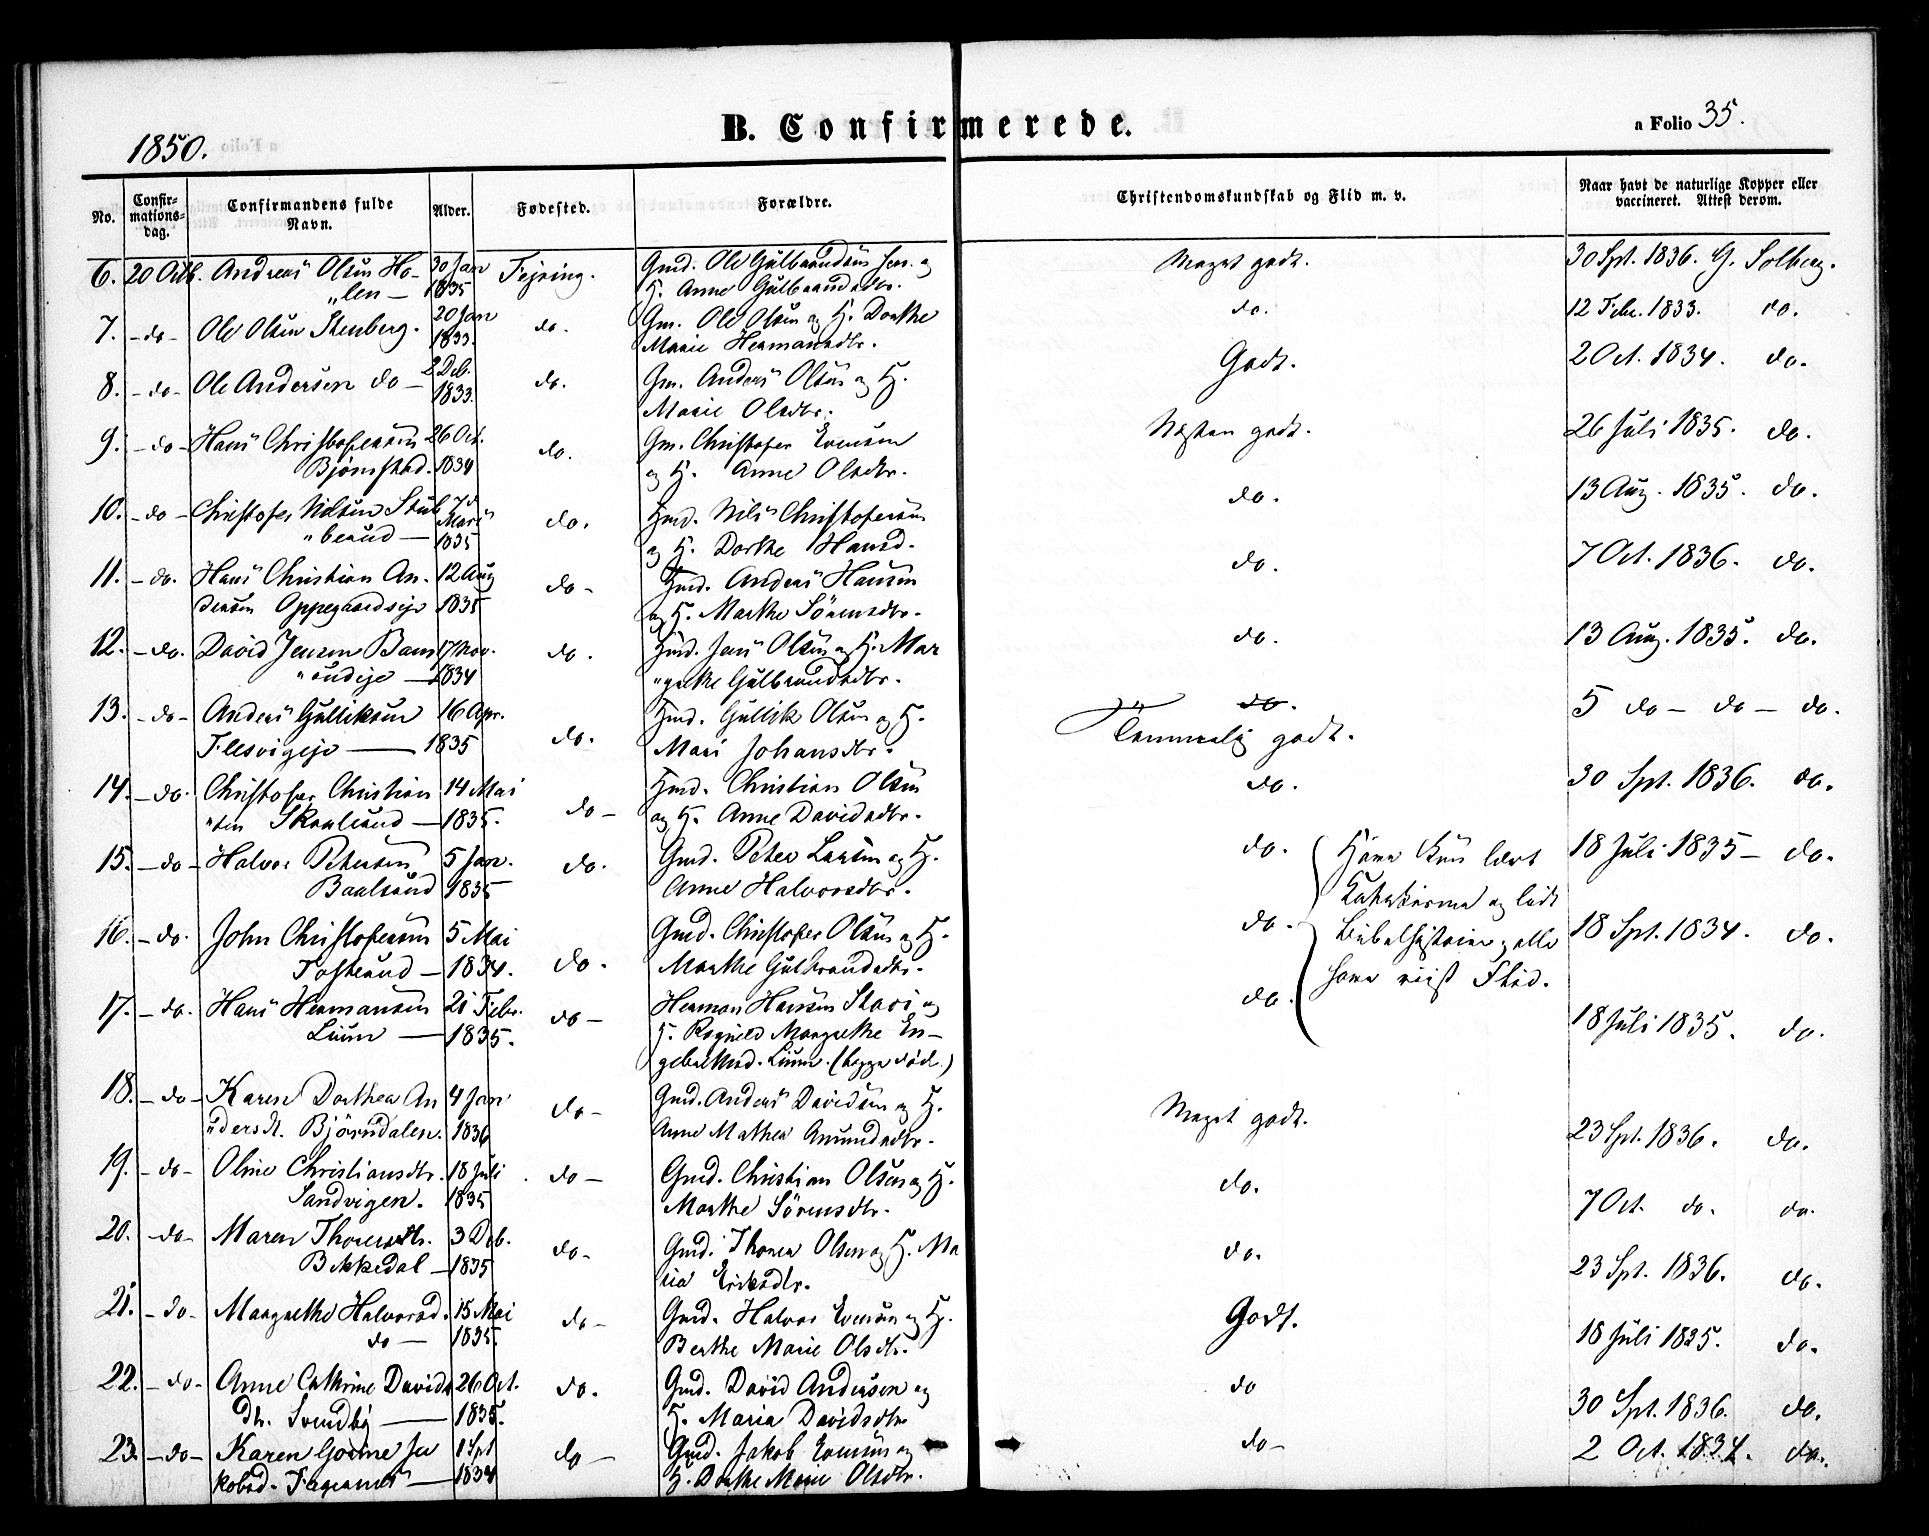 1850.
B. Confirmerede.
a Folio 35.
No.
Confirmationsdag.
Confirmandens fulde Navn.
Alder.
Fødested.
Forældre.
Christendomskundskab og Flid m. v.
Naar havt de naturlige Kopper eller vaccineret. Attest derom.
6. 20 Octb. Andreas Olsen Ho- 30 Jan Gmd. Ole Gulbrandsen og Meget godt. 30 Spt. 1836. G. Solberg.
"len — 1835 H. Anne Gulbrandsdtr.
7. -do- Ole Olsen Stenberg. 20 Jan do. Gm. Ole Olsen og H. Dorthe do. 12 Febr. 1833. do.
1833. Marie Hermansdtr.
8. -do- Ole Andersen do — 2 Deb. do. Gm. Anders Olsen og H. Godt. 2 Oct. 1834. do.
1833. Marie Olsdtr.
9. -do- Hans Christofersen 26 Oct. do. Gm. Christofer Evensen Næsten godt. 26 Juli 1835. do.
Bjørnstad. 1834 og H. Anne Olsdtr.
10. -do- Christofer Nilsen Stub do. Hmd. Nils Christofersen do. 13 Aug. 1835. do.
"berud — Mars 1835 og H. Dorthe Hansd.
11. -do. Hans Christian An- 12 Aug do- Hmd. Anders Hansen do. 7 Oct. 1836. do.
dersen Oppegaardseje 1835 og H. Marthe Sörensdtr.
12. -do. David Jensen Bam 17 Nov. do. Hmd. Jens Olsen og H. Mar do. 13 Aug. 1835. do.
"rudeje — 1834 "grethe Gulbrandsdtr.
13. -do- Anders Gulliksen 16 Apr. do. Hmd. Gullik Olsen og H. do. 5 do — do — do.
Flesvigeje — 1835 Mari Johansdtr. Temmelig godt.
14. -do. Christofer Christian 14 Mai do- Hmd. Christian Olsen do. 30 Spt. 1836. do.
"sen Skaalerud — 1835. og H. Anne Davidsdtr.
15. -do- Halvor Petersen 5 Jan. do. Gmd. Peter Larsen og H. do. Have kun lært 18 Juli 1835 — do.
Baalerud 1835 Anne Halvorsdtr. Katekisme og lidt
16. -do. John Christofersen 5 Mai do. Gmd. Christofer Olsen og H. do. Bibelhistorie, alle 18 Spt. 1834. do.
Tofterud — 1834. Marthe Gulbrandsdtr. have viist Flid.
17. -do. Hans Hermansen 21 Febr. do- Herman Hansen og do. 18 Juli 1835. do.
Lium — 1835. H. Ragnild Margrethe En-
gebrethsd. Lium. (begge døde.)
18. -do- Karen Dorthea An 4 Jan do- Gmd. Anders Davidsen og H. Meget godt. 23 Spt. 1836. do.
"dersdt. Björndalen. 1836 Anne Mathea Amundsdtr.
19. -do- Oline Christiansdtr. 18 Juli do- Gmd. Christian Olsen og H. do. 7 Oct. do. do.
Sandvigen. 1835 Marthe Sörensdtr.
20. -do- Maren Thoresdtr. 3 Deb. do- Gmd. Thore Olsen og H. Ma do. 23 Spt. 1836. do.
Bekkedal — 1835 ria Eriksdtr.
21. -do- Margrethe Halvorsd. 15 Mai do- Gmd. Halvor Evensen og H. Godt. 18 Juli 1835. do.
do — 1835. Berthe Marie Olsdtr.
22. -do- Anne Cathrine Davids 26 Oct. do. Gmd. David Andersen og do 30 Spt. 1836. do.
dtr. Svendby — 1835. H. Maria Davidsdtr.
23. -do- Karen Gorine Ja 1 Spt do- Gmd. Jakob Evensen og do- 2 Oct. 1834. do.
kobsd. — 1834 H. Dorthe Marie Olsdtr.